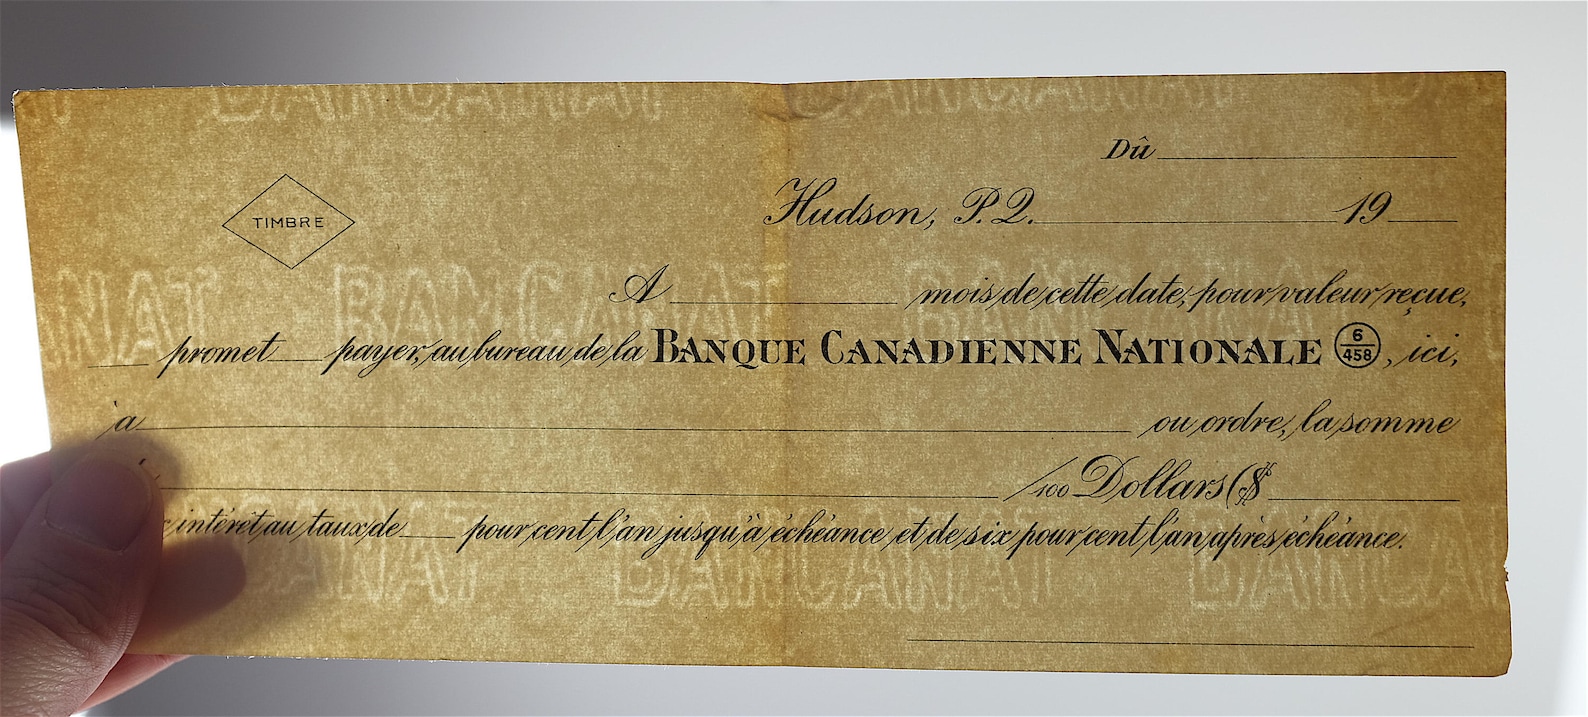 BANCANAT BANCANAT
Dû
TIMBRE
Hudson, P. Q. 19
NAT BANCANAT BANCANAT
A mois de cette date, pour valeur reçue,
promet payer, au bureau de la BANQUE CANADIENNE NATIONALE 6/458, ici,
à
ou ordre, la somme
/100 Dollars ($
intérêt au taux de pour cent l'an jusqu'à échéance et de six pour cent l'an après échéance.
ANAT BANCANAT BANCA